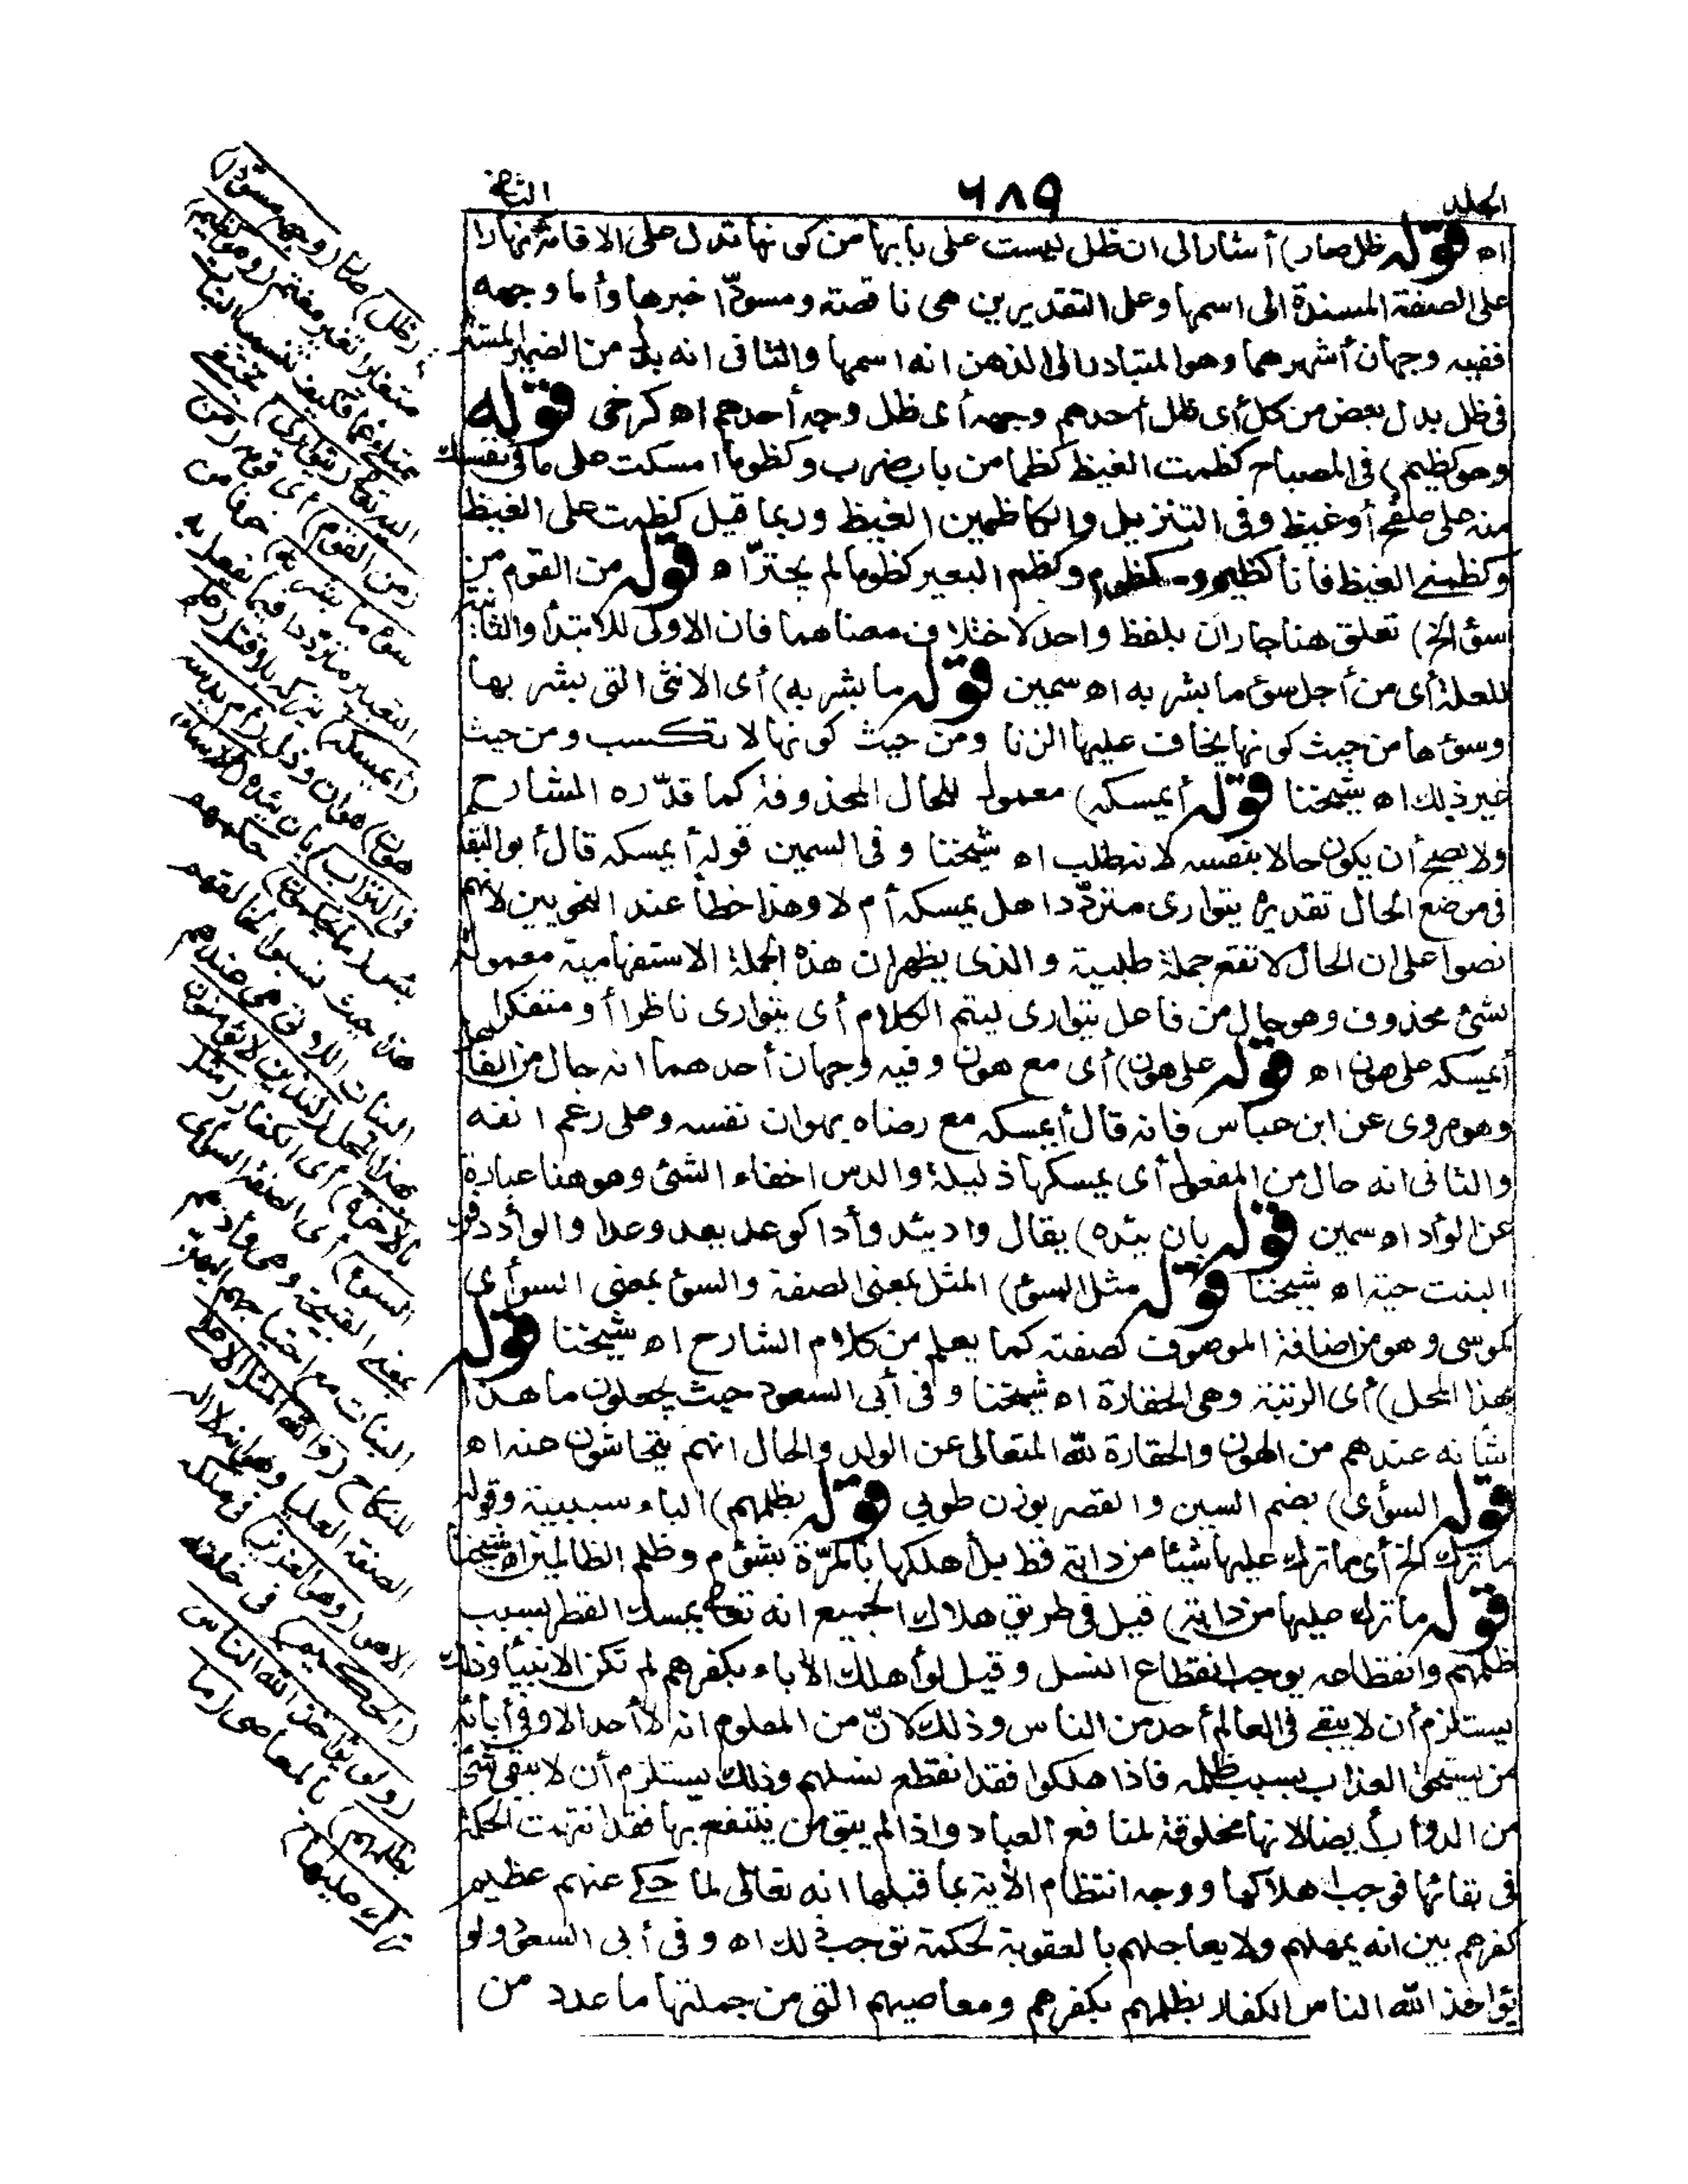 المجلد
٦٨٩
الثاني
اه قوله ظل صار) أشار الى ان ظل ليست على بابها من كونها تدل على الاقامة نهارا
على الصفة المسندة الى اسمها وعلى التقديرين هى ناقصة ومسودّا خبرها وأما وجهه
ففيه وجهان أشهرهما وهو المتبادر الى الذهن انه اسمها والثانى انه بدل من الضمير المستتر
فى ظل بدل بعض من كل أى ظل أحدهم وجهه أى ظل وجه أحدهم اه كرخى قوله
وهو كظيم) فى المصباح كظمت الغيظ كظما من باب ضرب وكظوما امسكت على ما فى نفسك
منه على صفح أو غيظ وفى التنزيل والكاظمين الغيظ وربما قيل كظمت على الغيظ
وكظمنى الغيظ فأنا كظيم ومكظوم وكظم البعير كظوما لم يجترّ اه قوله من القوم من
سوء الخ) تعلق هنا جاران بلفظ واحد لاختلاف معناهما فان الاولى للابتداء والثانية
للعلة أى من أجل سوء ما بشر به اه سمين قوله ما بشر به) أى الانثى التى بشر بها
وسوءها من حيث كونها يخاف عليها الزنا ومن حيث كونها لا تكسب ومن حيث
غير ذلك اه شيخنا قوله أيمسكه) معمول للحال المحذوفة كما قدّره الشارح
ولا يصح أن يكون حالا بنفسه لانه طلب اه شيخنا وفى السمين قوله أيمسكه قال أبو البقاء
فى موضع الحال تقديره يتوارى متردّدا هل يمسكه أم لا وهذا خطأ عند النحويين لانهم
نصوا على ان الحال لا تقع جملة طلبية والذى يظهر ان هذه الجملة الاستفهامية معمولة
لشئ محذوف وهو حال من فاعل يتوارى ليتم الكلام أى يتوارى ناظرا أو متفكرا
أيمسكه على هون اه قوله على هون) أى مع هون وفيه وجهان أحدهما انه حال من الفاعل
وهو مروى عن ابن عباس فانه قال أيمسكه مع رضاه بهوان نفسه وعلى رغم انفه
والثانى انه حال من المفعول أى يمسكها ذليلة والدس اخفاء الشئ وهو هنا عبارة
عن الوأد اه سمين قوله بان يئده) يقال واد يئد وأدا كوعد يعد وعدا والوأد دفن
البنت حية اه شيخنا قوله مثل السوء) المثل بمعنى الصفة والسوء بمعنى السوأى
كموسى وهو من اضافة الموصوف لصفته كما يعلم من كلام الشارح اه شيخنا قوله
بهذا المحل) أى الرتبة وهى الحقارة اه شيخنا وفى أبى السعود حيث يجعلون ما هذا
شأنه عندهم من الهون والحقارة لله المتعالى عن الولد والحال انهم يتحاشون عنه اه
قوله السوأى) بضم السين والقصر بوزن طوبى قوله بظلمهم) الباء سببية وقوله
ما ترك الخ أى ما ترك عليها شيئا من دابة قط بل أهلكها بالمرّة بشؤم وظلم الظالمين اه شيخنا
قوله ما ترك عليها من دابة) قيل فى طريق هلاك الجميع انه تعالى يمسك القطر بسبب
ظلمهم وانقطاعه يوجب انقطاع النسل وقيل لو أهلك الآباء بكفرهم لم تكن الابناء وذلك
يستلزم أن لا يبقى فى العالم أحد من الناس وذلك لانّ من المعلوم انه لا أحد الا وفى أبائه
من يستحق العذاب بسبب ظلمه فاذا هلكوا فقد انقطع نسلهم وذلك يستلزم أن لا يبقى شئ
من الدواب أيضا لانها مخلوقة لمنافع العباد واذا لم يبق من ينتفع بها فقد انتهت الحكمة
فى بقائها فوجب اهلاكها ووجه انتظام الآية بما قبلها انه تعالى لما حكى عنهم عظيم
كفرهم بين انه يمهلهم ولا يعاجلهم بالعقوبة لحكمة توجب ذلك اه وفى أبى السعود ولو
يؤاخذ الله الناس الكفار بظلمهم بكفرهم ومعاصيهم التى من جملتها ما عدد من
(ظل) صار (وجهه مسودّا)
متغيرا تغير مغتم (وهو كظيم)
ممتلئ غما فكيف تنسب البنات
اليه تعالى (يتوارى) يختفى
(من القوم) أى قومه (من
سوء ما بشر به) خوفا من
التعيير مترددا فيما يفعل به
(أيمسكه) يتركه بلا قتل (على
هون) هوان وذل (أم يدسه
فى التراب) بان يئده (ألا ساء)
بئس (ما يحكمون) حكمهم
هذا حيث نسبوا لخالقهم
البنات اللاتى هى عندهم
بهذا المحل (للذين لا يؤمنون
بالآخرة) أى الكفار (مثل
السوء) أى الصفة السوأى
بمعنى القبيحة وهى وأدهم
البنات مع احتياجهم اليهن
للنكاح (ولله المثل الاعلى)
الصفة العليا وهو انه لا اله
الا هو (وهو العزيز) فى ملكه
(الحكيم) فى خلقه
(ولو يؤاخذ الله الناس
بظلمهم) بالمعاصى (ما
ترك عليها)